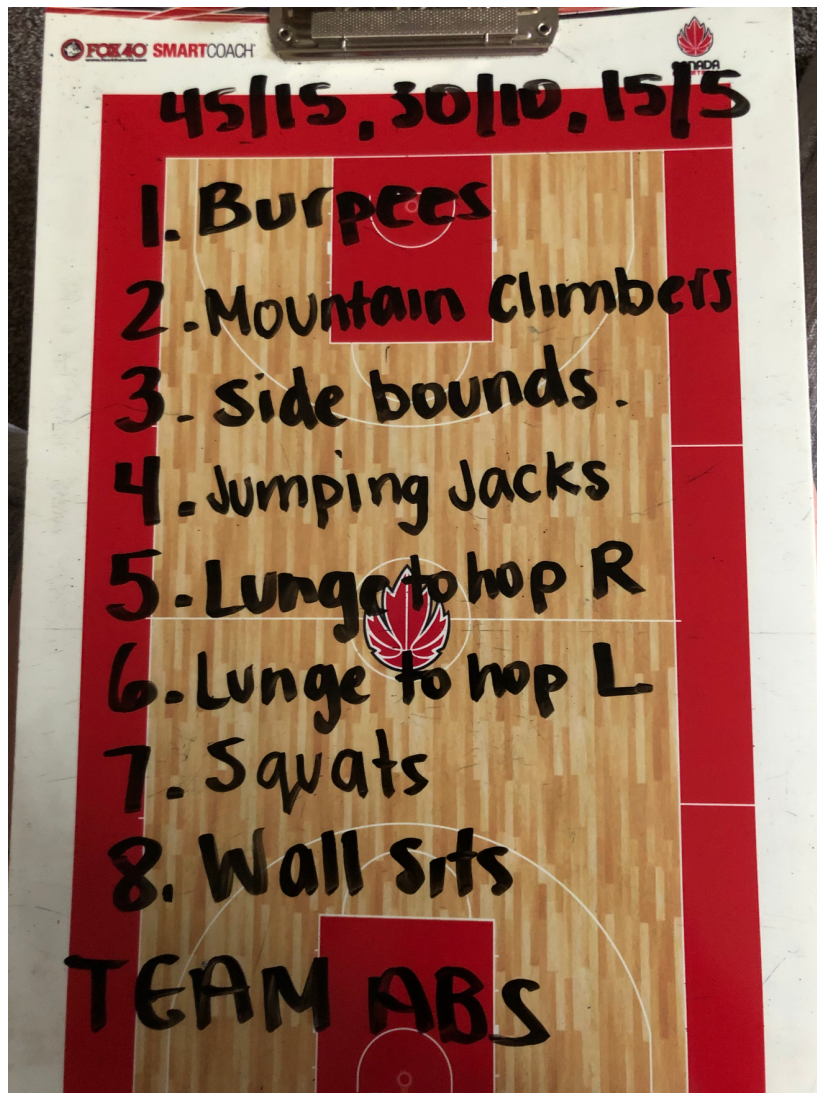 FOX 40 SMARTCOACH
CANADA
45/15, 30/10, 15/5
1. Burpees
2. Mountain Climbers
3. Side bounds.
4. Jumping Jacks
5. Lunge to hop R
6. Lunge to hop L
7. Squats
8. Wall Sits
TEAM ABS